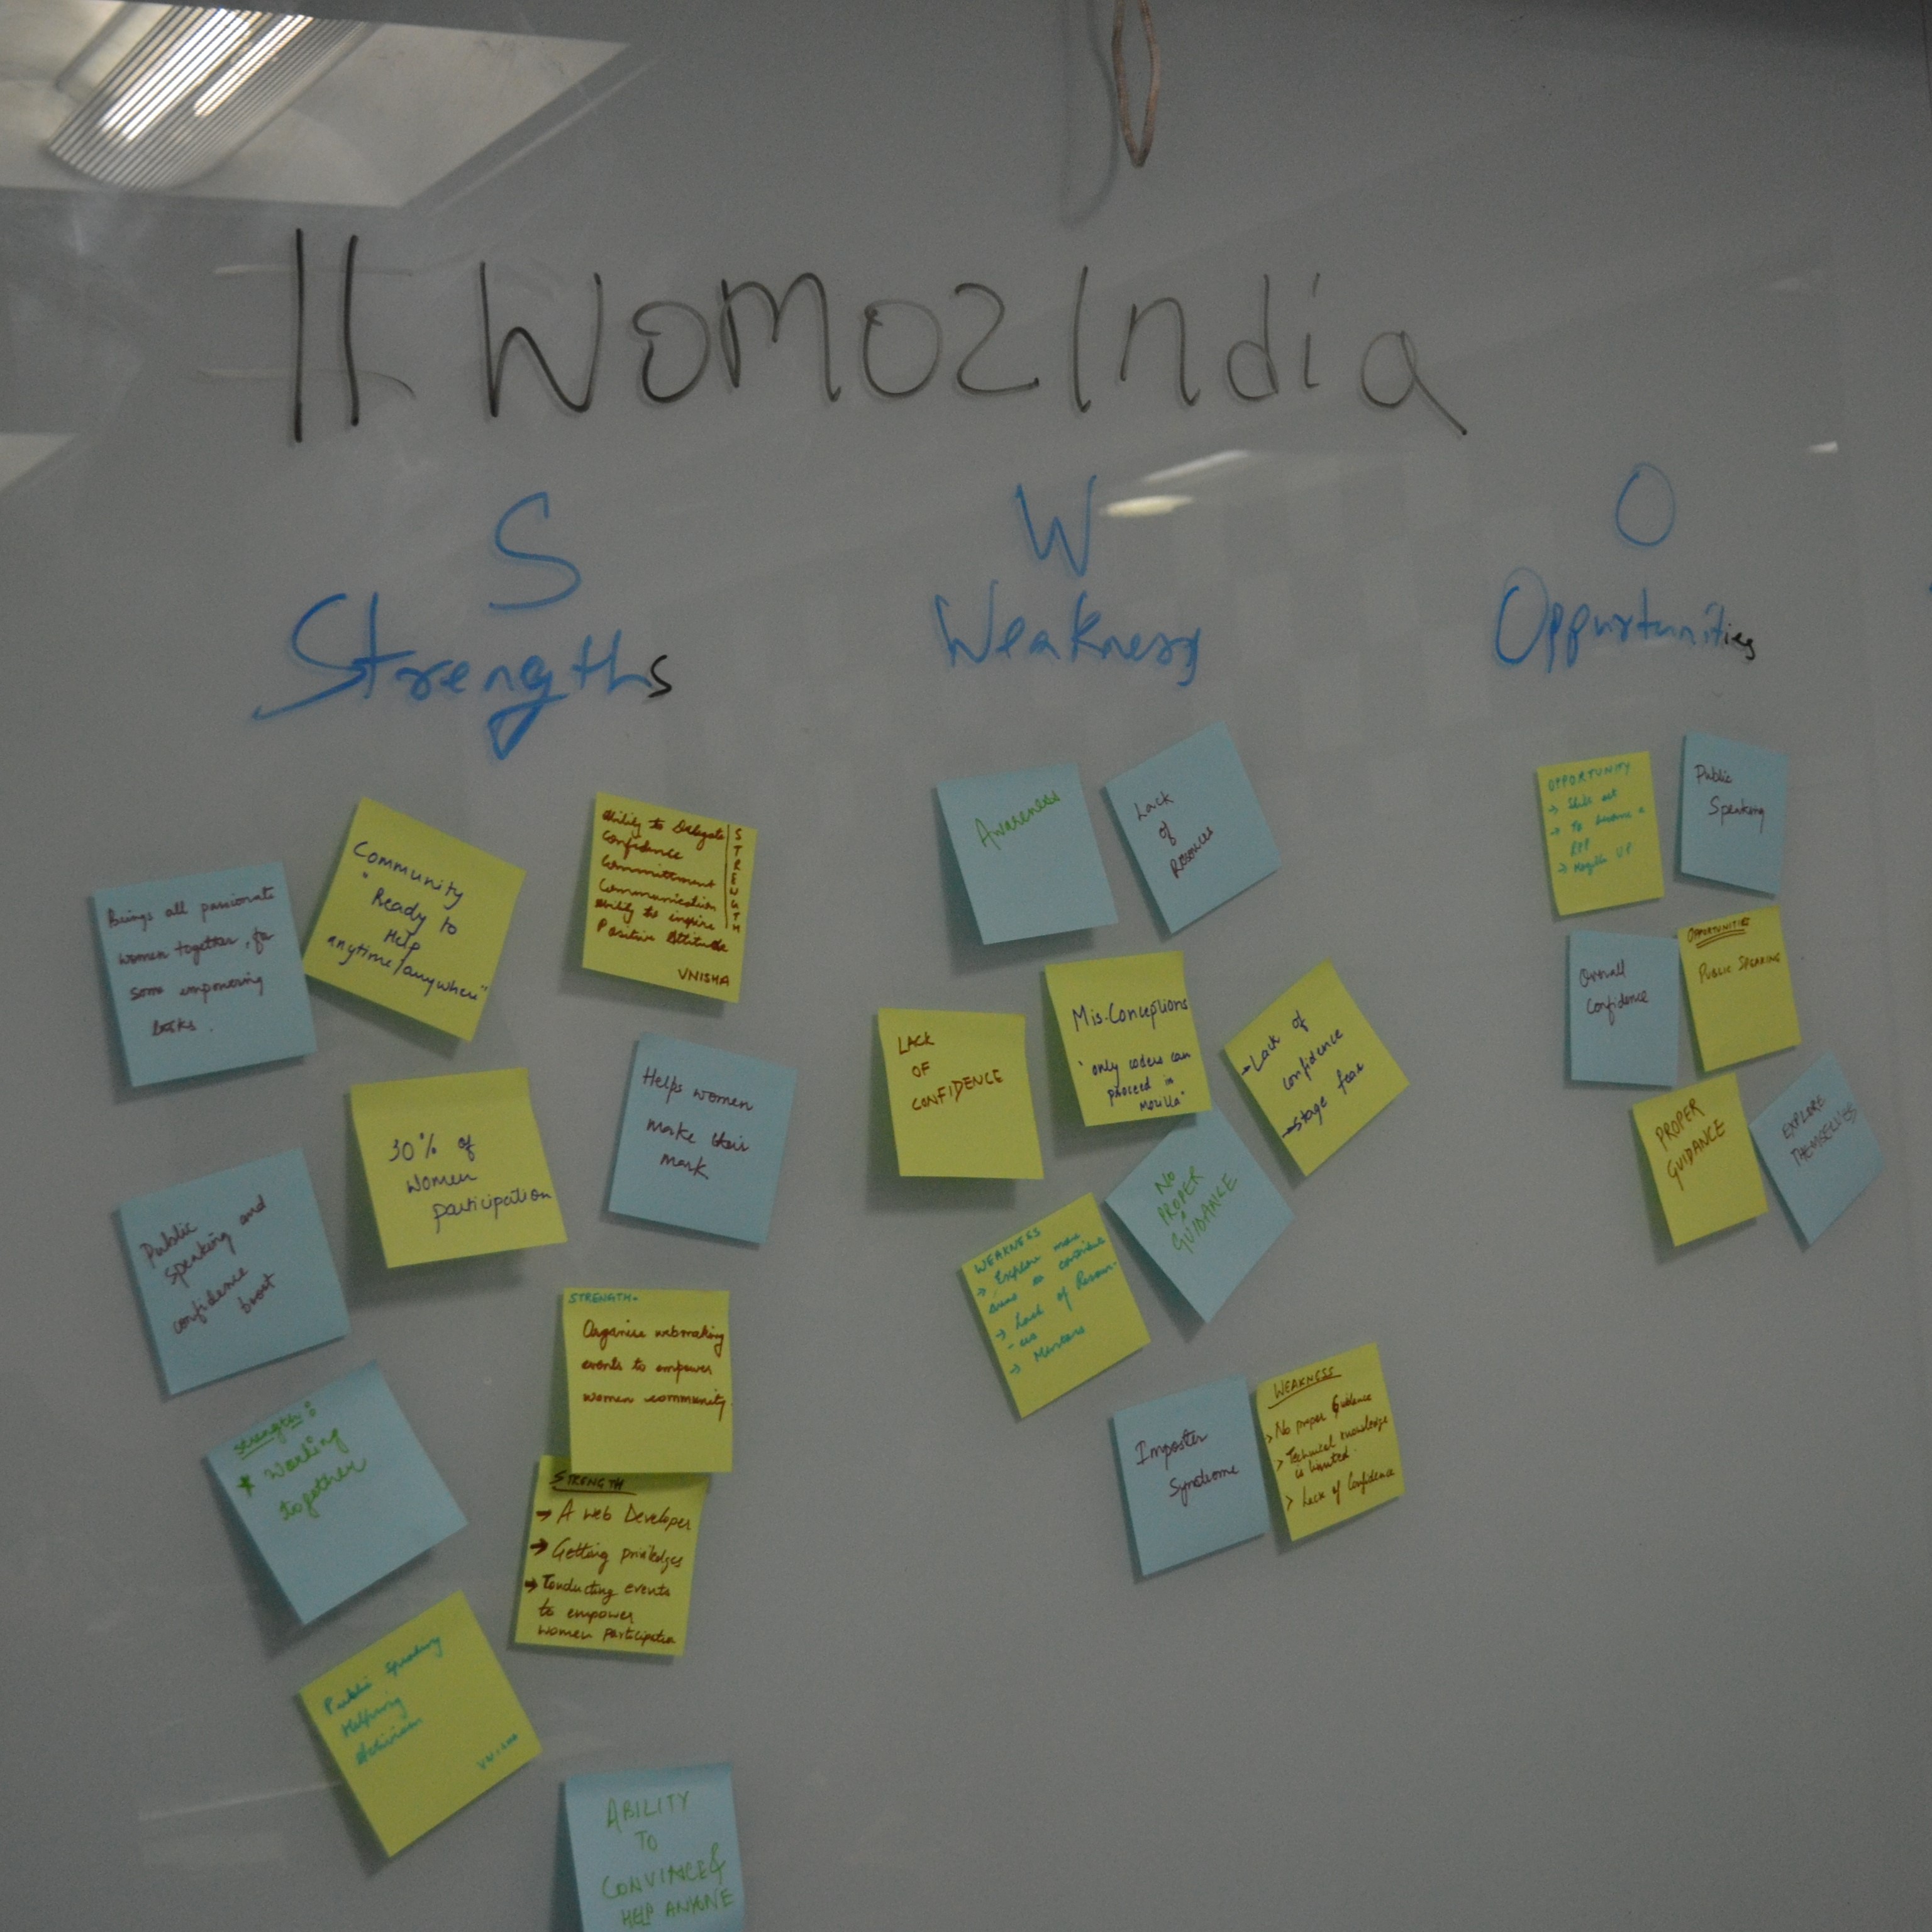 || WOMOZIndia
S
Strengths
W
Weakness
O
Oppurtunities
Brings all passionate
women together, for
some empowering
tasks.
Community
"Ready to
Help
anytime/anywhere"
Ability to Delegate
Confidence
Committment
Communication
Ability to inspire
Positive Attitude
STRENGTH
VNISHA
30% of
Women
participation
Helps women
make their
mark
Public
speaking and
confidence
boost
STRENGTH.
Organise webmaking
events to empower
women community.
Strength:
* Working
together
STRENGTH
→ A web Developer
→ Getting priviledges
→ Conducting events
to empower
women participation
Public speaking
Helping
VNISHA
ABILITY
TO
CONVINCE &
HELP ANYONE
Awareness
Lack
of
Resources
LACK
OF
CONFIDENCE
Mis.Conceptions
"only coders can
proceed in
Mozilla"
→ Lack of
confidence
→ Stage fear
NO
PROPER
GUIDANCE
WEAKNESS
→ Explore more
areas to contribute
→ Lack of Resour-
-ces
→ Mentors
Imposter
Syndrome
WEAKNESS
> No proper Guidence
> Technical knowledge
is limited.
> Lack of Confidence
OPPORTUNITY
→ To become a
Public
Speaking
Overall
Confidence
OPPORTUNITIES
PUBLIC SPEAKING
PROPER
GUIDANCE
EXPLORE
THEMSELVES